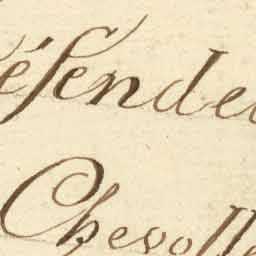 éfende
Chevoll